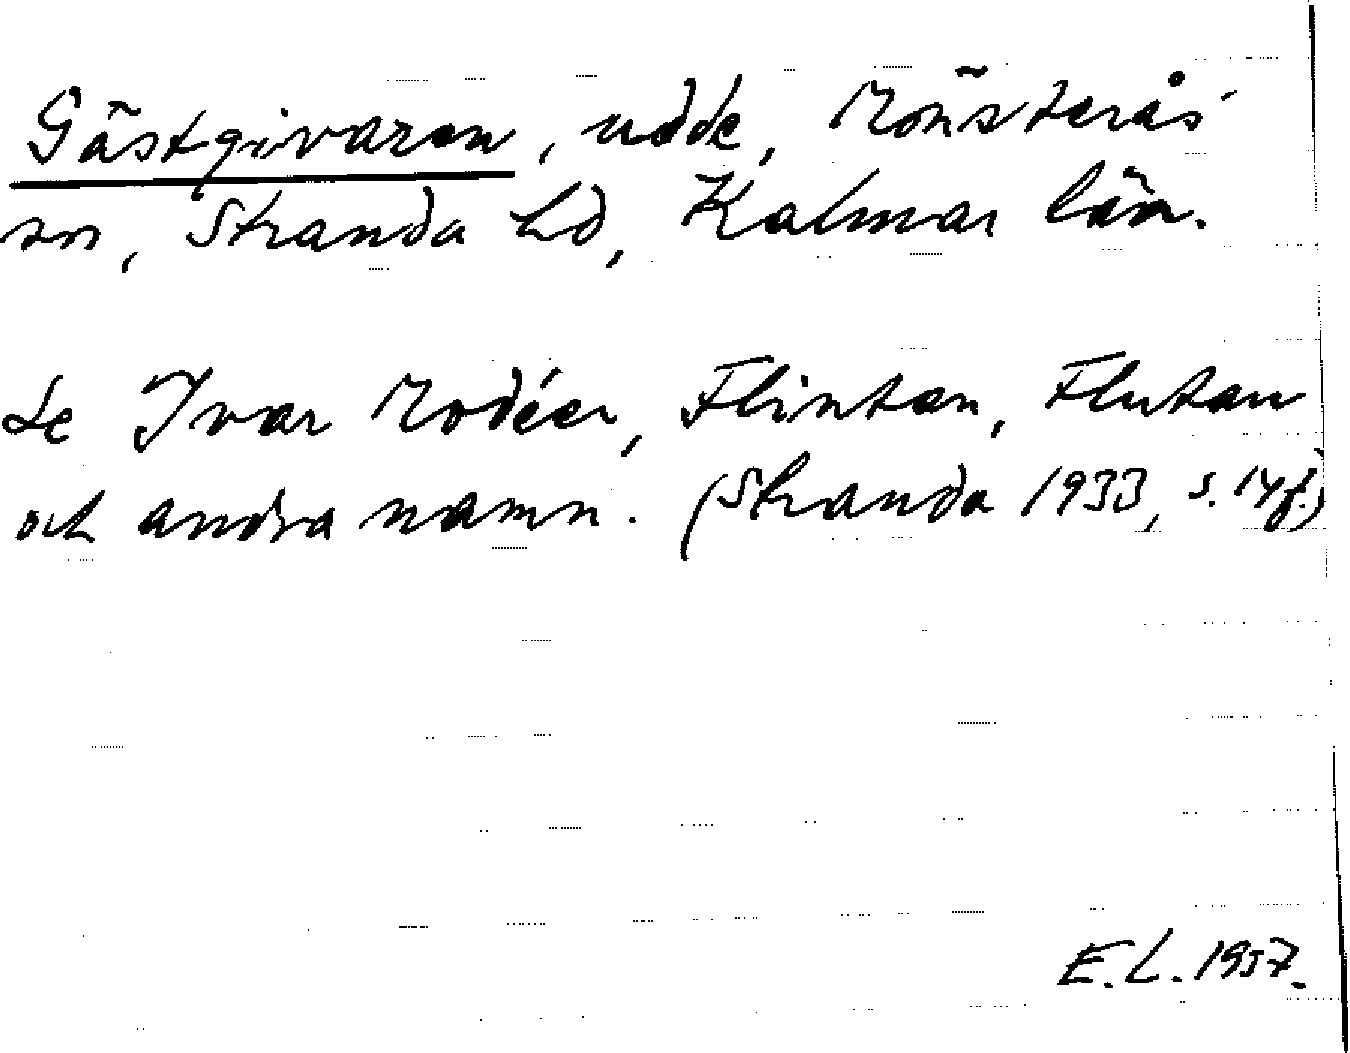 Gästgivaren, udde, Mönsterås
sn, Stranda hd, Kalmar län.
Se Ivar Modéer, Flintan, Flutan
och andra namn. (Stranda 1933, s. 14f.)
E.L. 1957.